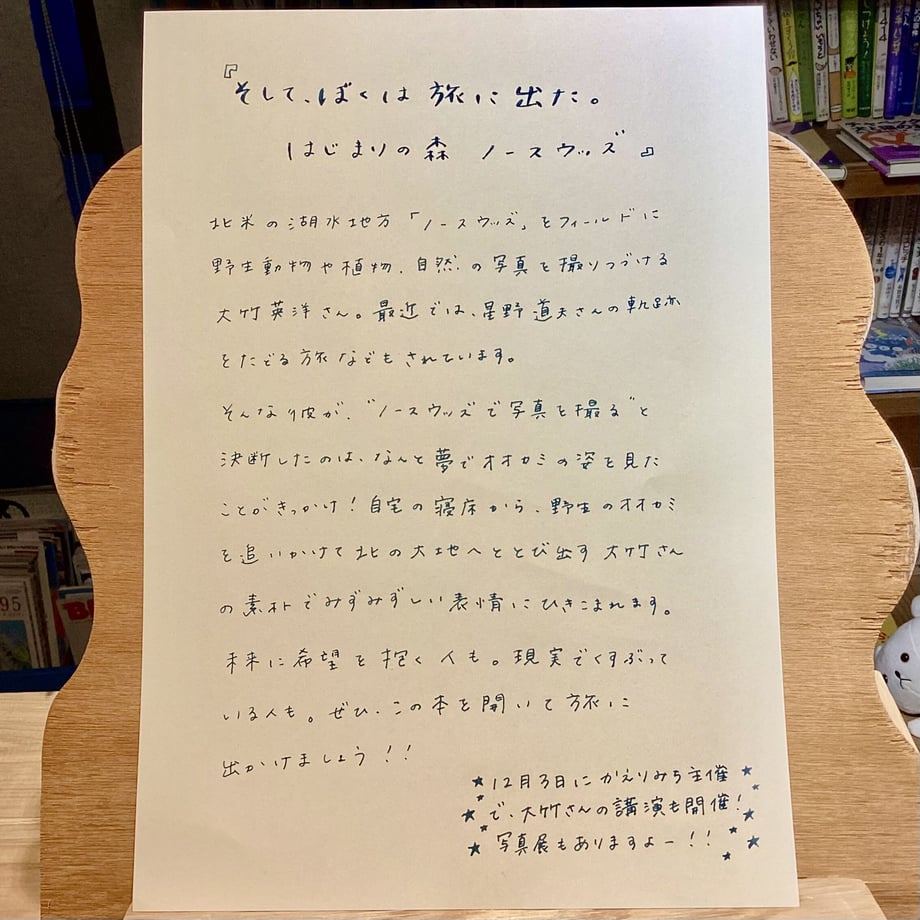 『そして、ぼくは旅に出た。
はじまりの森 ノースウッズ』
北米の湖水地方「ノースウッズ」をフィールドに
野生動物や植物、自然、の写真を撮りつづける
大竹英洋さん。最近では、星野道夫さんの軌跡
をたどる旅などもされています。
そんな彼が、“ノースウッズで写真を撮る”と
決断したのは、なんと夢でオオカミの姿を見た
ことがきっかけ!自宅の寝床から、野生のオオカミ
を追いかけて北の大地へととび出す大竹さん
の素朴でみずみずしい表情にひきこまれます。
未来に希望を抱く人も。現実でくすぶって
いる人も。ぜひ、この本を開いて旅に
出かけましょう!!
★12月3日にかえりみち主催★
で、大竹さんの講演も開催!
写真展もありますよー!!
95